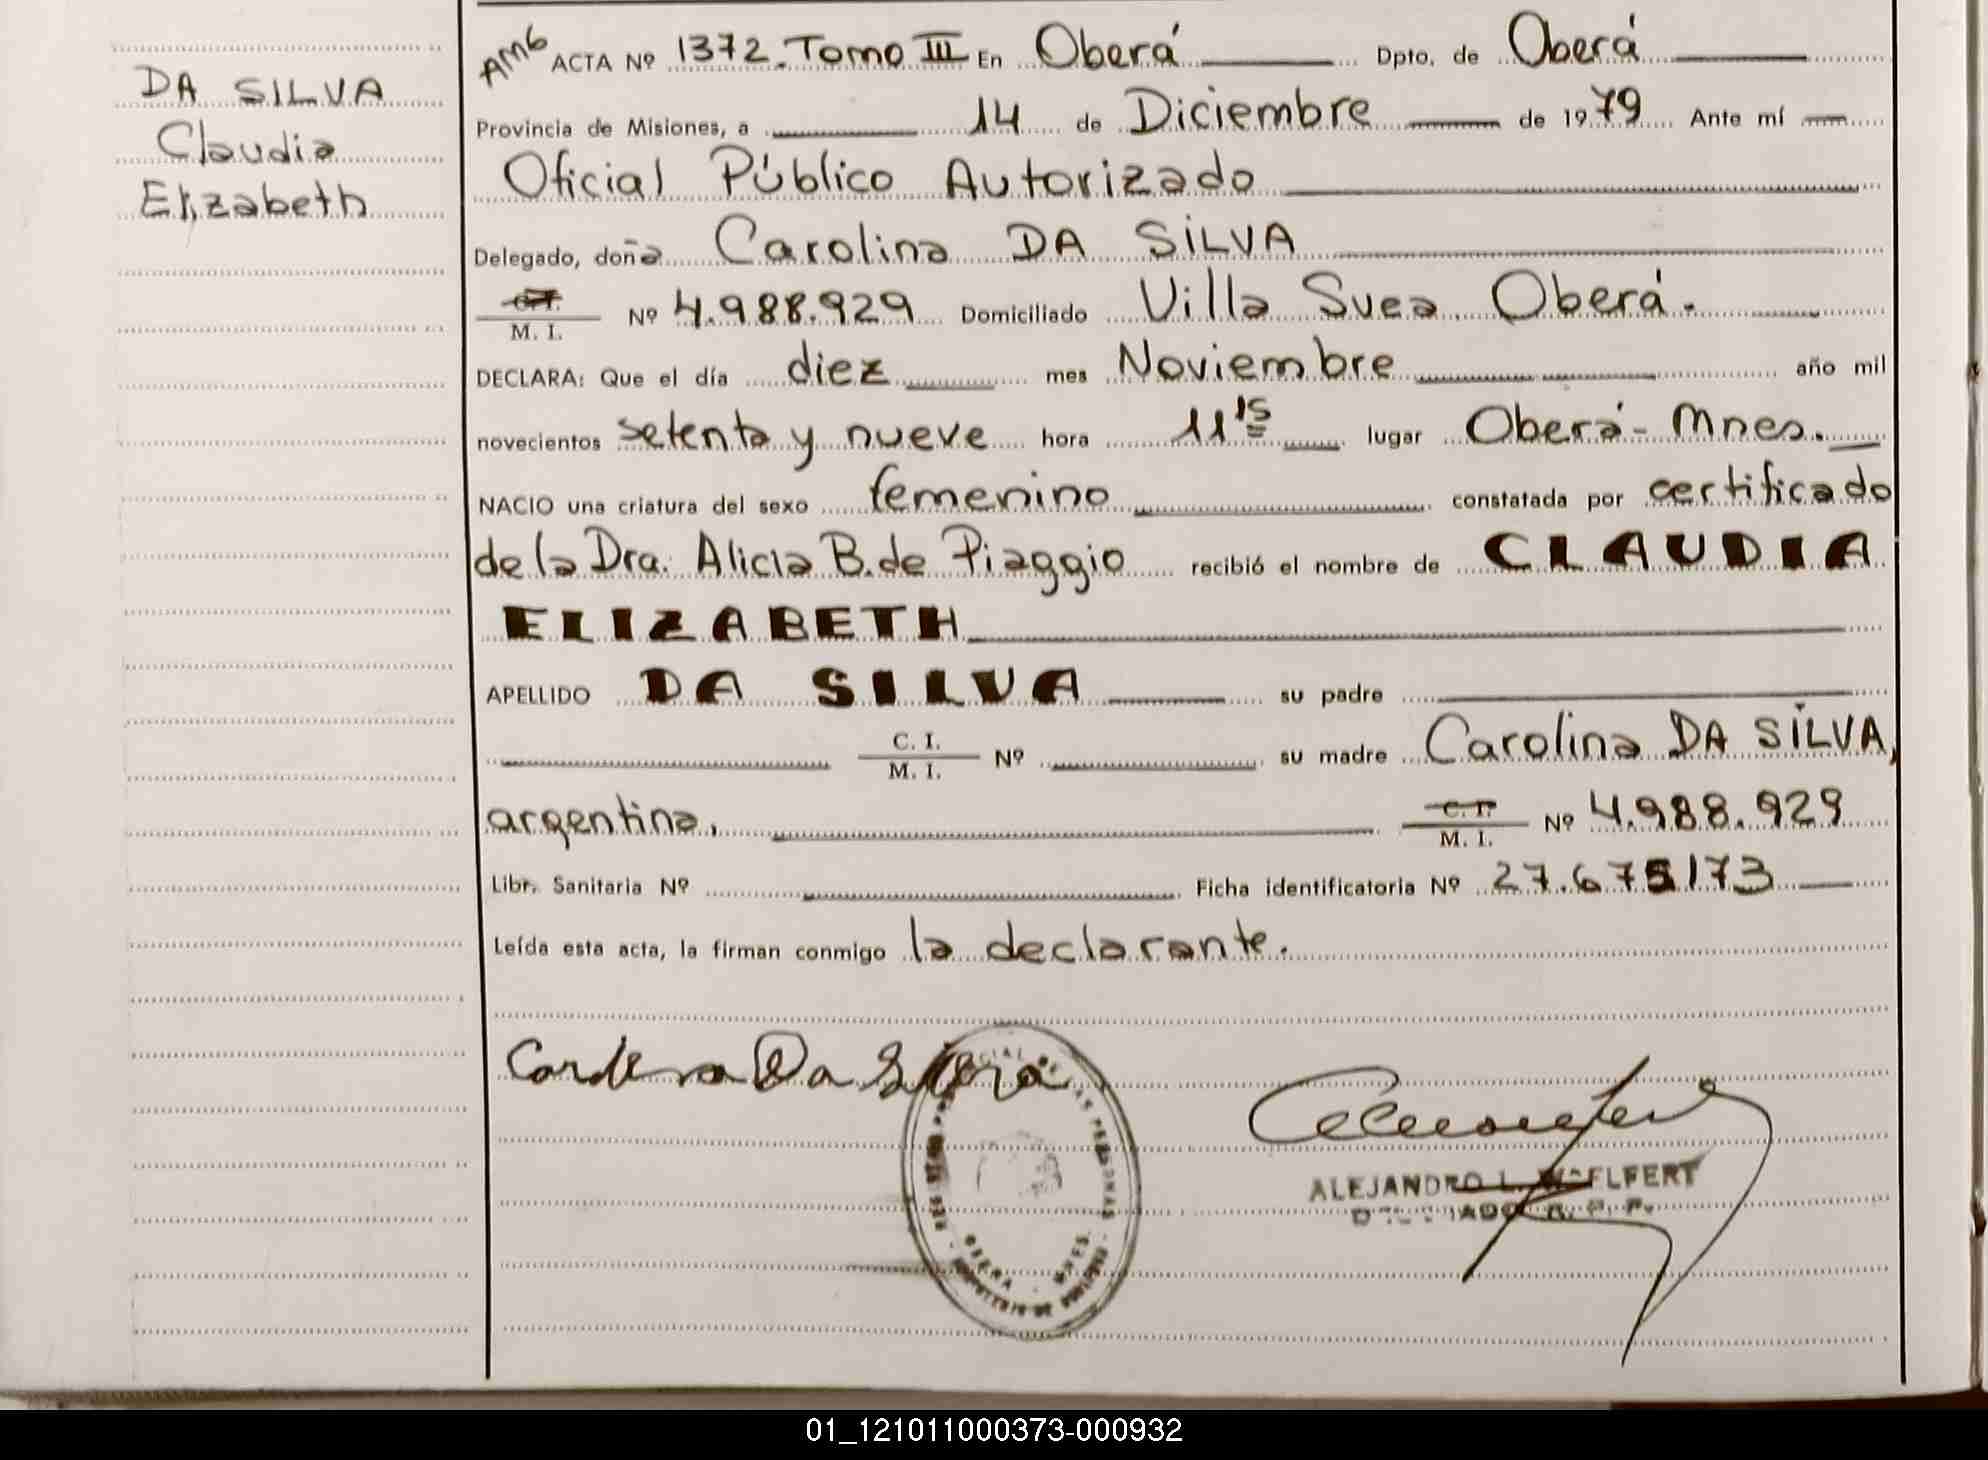 DA SILVA
Claudia
Elizabeth
AMG ACTA Nº 1372. Tomo III En Oberá Dpto. de Oberá
Provincia de Misiones, a 14 de Diciembre de 1979 Ante mí
Oficial Público Autorizado
Delegado, doña Carolina DA SILVA
C.I. M. I. Nº 4.988.929 Domiciliado Villa Svea Oberá.
DECLARA: Que el día diez mes Noviembre año mil
novecientos setenta y nueve hora 11 15 lugar Oberá - Mnes.
NACIO una criatura del sexo femenino constatada por certificado
de la Dra. Alicia B. de Piaggio recibió el nombre de CLAUDIA
ELIZABETH
APELLIDO DA SILVA su padre
C. I. M. I. Nº su madre Carolina DA SILVA,
argentina. C. I. M. I. Nº 4.988.929
Libr. Sanitaria Nº Ficha identificatoria Nº 27.675173
Leída esta acta, la firman conmigo la declarante.
Da Silva
PERSONAS
OBERA - MNES.
ALEJANDRO L. WOELFERT
DELEGADO R. P. P.
01_121011000373-000932